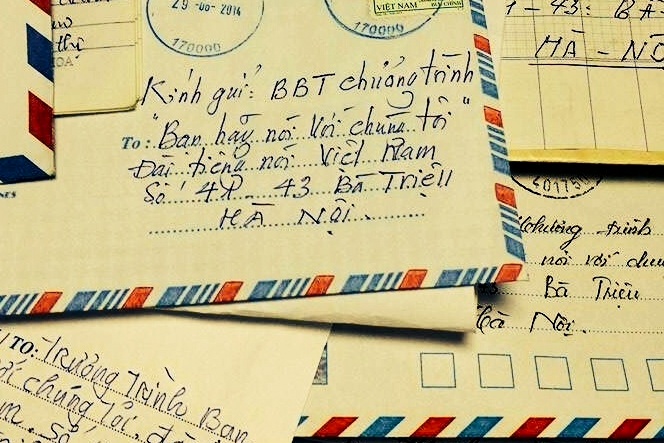 29-06-2014
170000
170000
VIỆT NAM
Kính gửi: BBT chương trình
To: "Bạn hãy nói với chúng tôi"
Đài tiếng nói Việt Nam
Số 41 - 43 Bà Triệu
HÀ NỘI.
thư
- 43: BÀ
HÀ - NỘ
401750
chương trình
nói với chún
Bà Triệu
Hà Nội.
TO: Trưởng Trình Bạn
ới chúng tôi, đà
m. Số